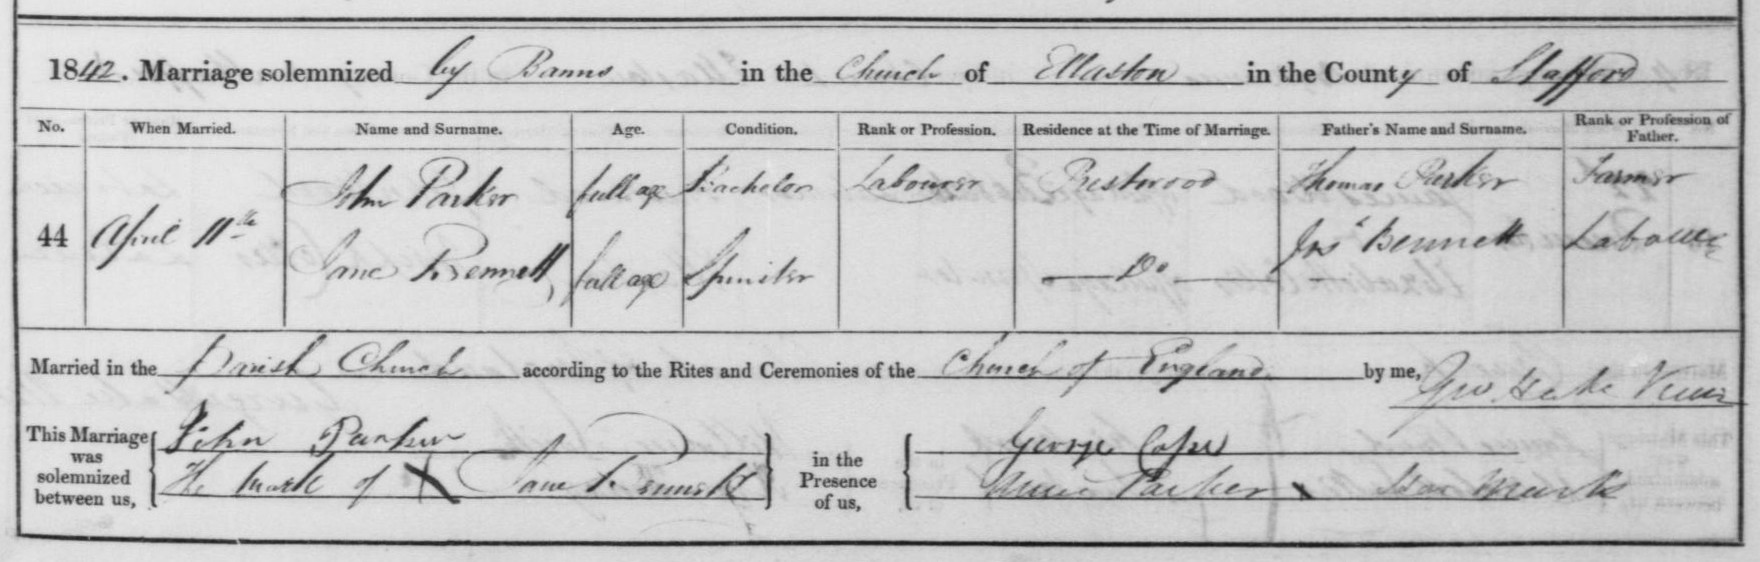 1842. Marriage solemnized by Banns in the Church of Ellaston in the County of Stafford
No. When Married. Name and Surname. Age. Condition. Rank or Profession. Residence at the Time of Marriage. Father's Name and Surname. Rank or Profession of Father.
44 April 11th John Parker full age Bachelor Labourer Prestwood Thomas Parker Farmer
Jane Bennett full age Spinster Do Jns Bennett Labourer
Married in the Parish Church according to the Rites and Ceremonies of the Church of England by me, Geo Vicar
This Marriage was solemnized between us, John Parker
The mark of X Jane Bennett
in the Presence of us, George Cope
Parker x Her Mark